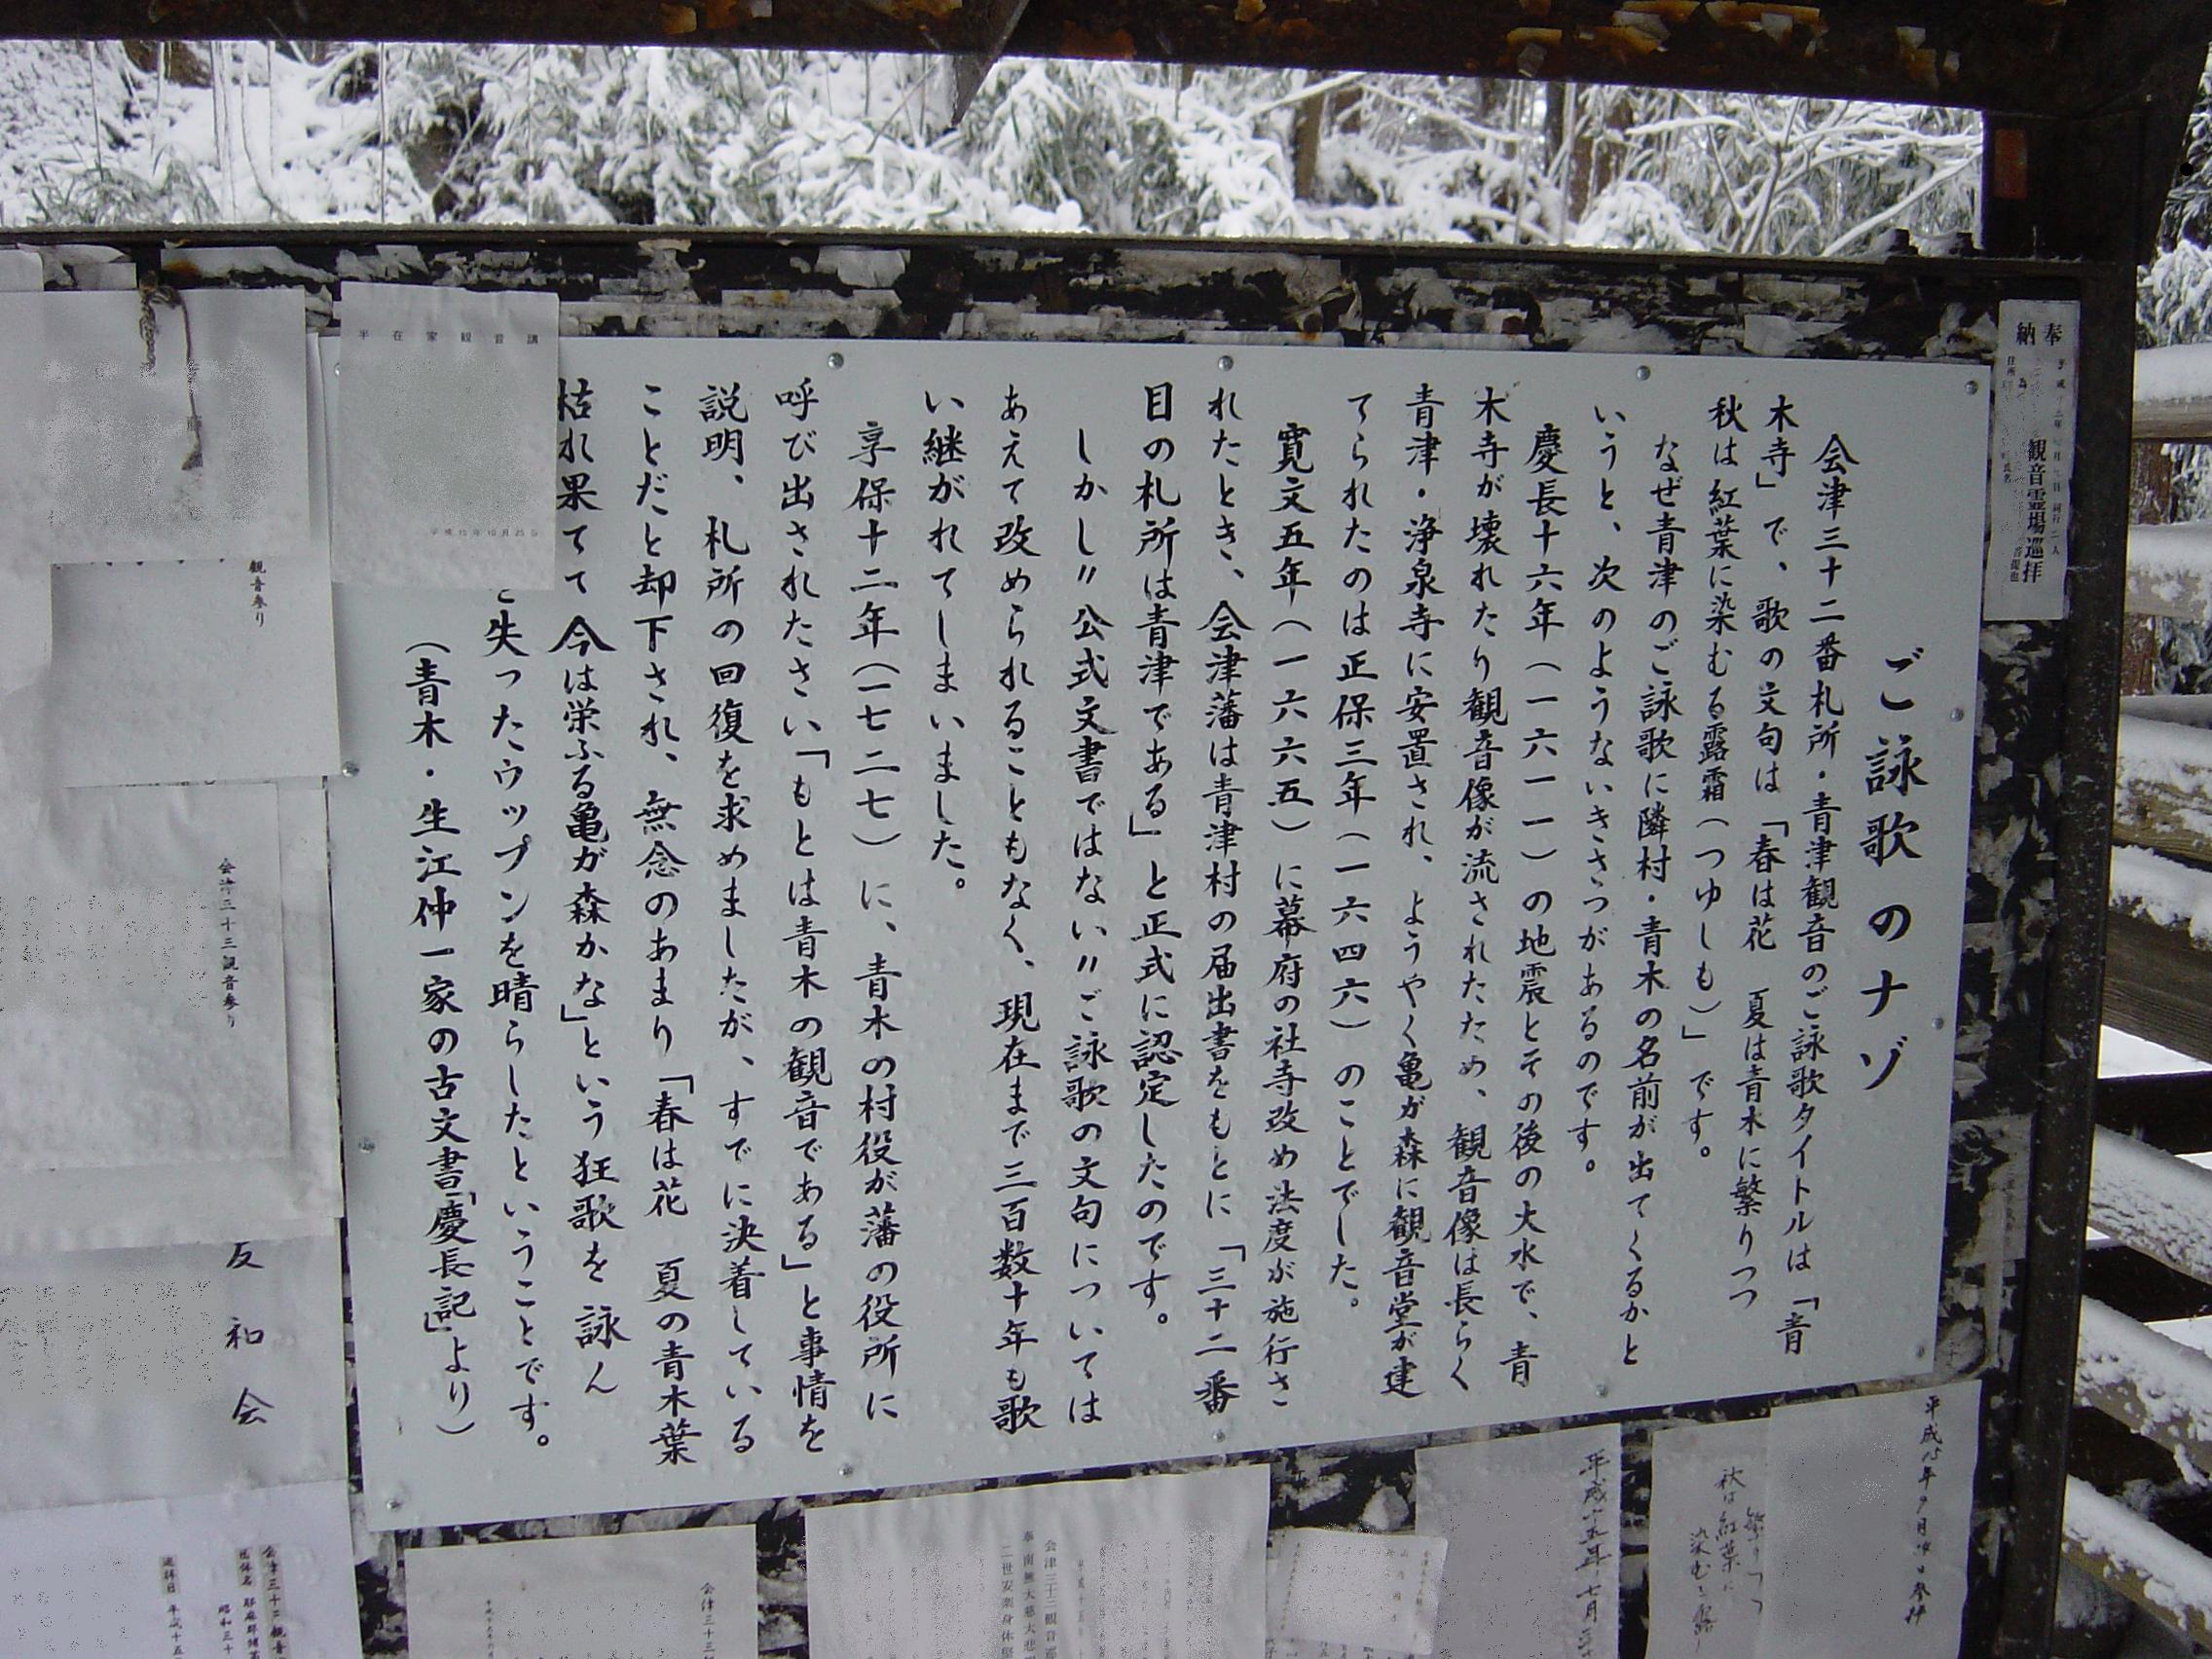 ご詠歌のナゾ
会津三十二番札所・青津観音のご詠歌タイトルは「青
木寺」で、歌の文句は「春は花　夏は青木に繁りつつ
秋は紅葉に染むる露霜（つゆしも）」です。
なぜ青津のご詠歌に隣村・青木の名前が出てくるかと
いうと、次のようないきさつがあるのです。
慶長十六年（一六一一）の地震とその後の大水で、青
木寺が壊れたり観音像が流されたため、観音像は長らく
青津・浄泉寺に安置され、ようやく亀が森に観音堂が建
てられたのは正保三年（一六四六）のことでした。
寛文五年（一六六五）に幕府の社寺改め法度が施行さ
れたとき、会津藩は青津村の届出書をもとに「三十二番
目の札所は青津である」と正式に認定したのです。
しかし〃公式文書ではない〃ご詠歌の文句については
あえて改められることもなく、現在まで三百数十年も歌
い継がれてしまいました。
享保十二年（一七二七）に、青木の村役が藩の役所に
呼び出されたさい「もとは青木の観音である」と事情を
説明、札所の回復を求めましたが、すでに決着している
ことだと却下され、無念のあまり「春は花　夏の青木葉
枯れ果てて　今は栄ふる亀が森かな」という狂歌を詠ん
を失ったウップンを晴らしたということです。
（青木・生江仲一家の古文書「慶長記」より）
奉納
観音霊場巡拝
半在家観音講
平成15年10月25日
観音参り
会津三十三観音参り
友和会
平成15年9月
参拝
繁りつつ
秋は紅葉に
染むる露
平成十五年七月
会津三十三観音
奉南無大慈大悲
二世安楽
会津三十三
昭和三十
巡拝日　平成十五